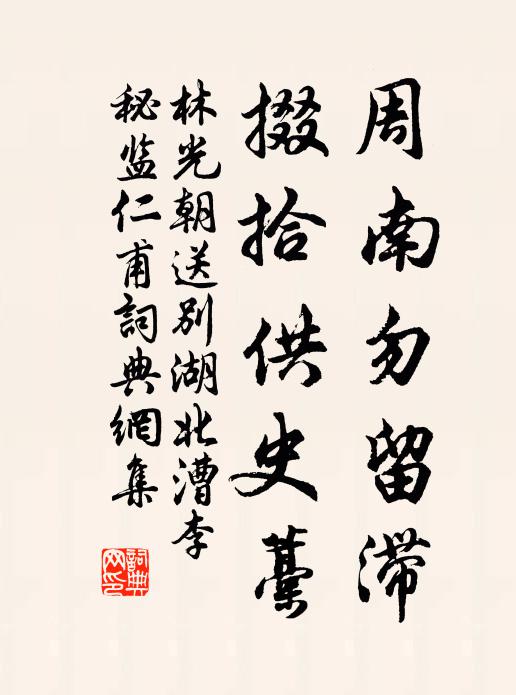 周南勿留滯
掇拾供史藁
林光朝送別湖北漕李
秘监仁甫詞典網集
詞典
网印